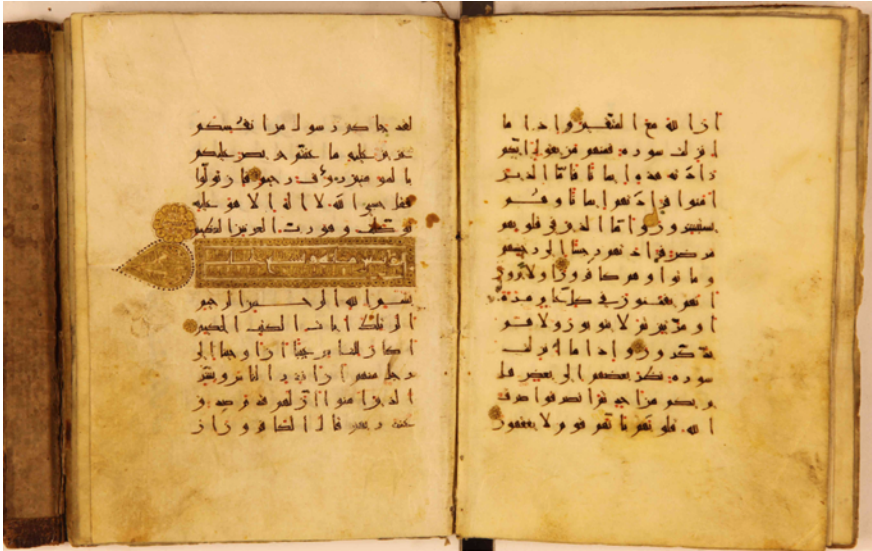 ان الله مع المتقين واذا ما
انزلت سورة فمنهم من يقول ايكم
زادته هذه ايمانا فاما الذين
امنوا فزادتهم ايمانا وهم
يستبشرون واما الذين في قلوبهم
مرض فزادتهم رجسا الى رجسهم
وماتوا وهم كافرون اولا يرون
انهم يفتنون في كل عام مرة
او مرتين ثم لا يتوبون ولا هم
يذكرون واذا ما انزلت
سورة نظر بعضهم الى بعض هل
يريكم من احد ثم انصرفوا صرف
الله قلوبهم بانهم قوم لا يفقهون
لقد جاكم رسول من انفسكم
عزيز عليه ما عنتم حريص عليكم
بالمومنين روف رحيم فان تولوا
فقل حسبي الله لا اله الا هو عليه
توكلت وهو رب العرش العظيم
بسم الله الرحمن الرحيم
الر تلك ايات الكتب الحكيم
اكان للناس عجبا ان اوحينا الى
رجل منهم ان انذر الناس وبشر
الذين امنوا ان لهم قدم صدق
عند ربهم قال الكافرون ان